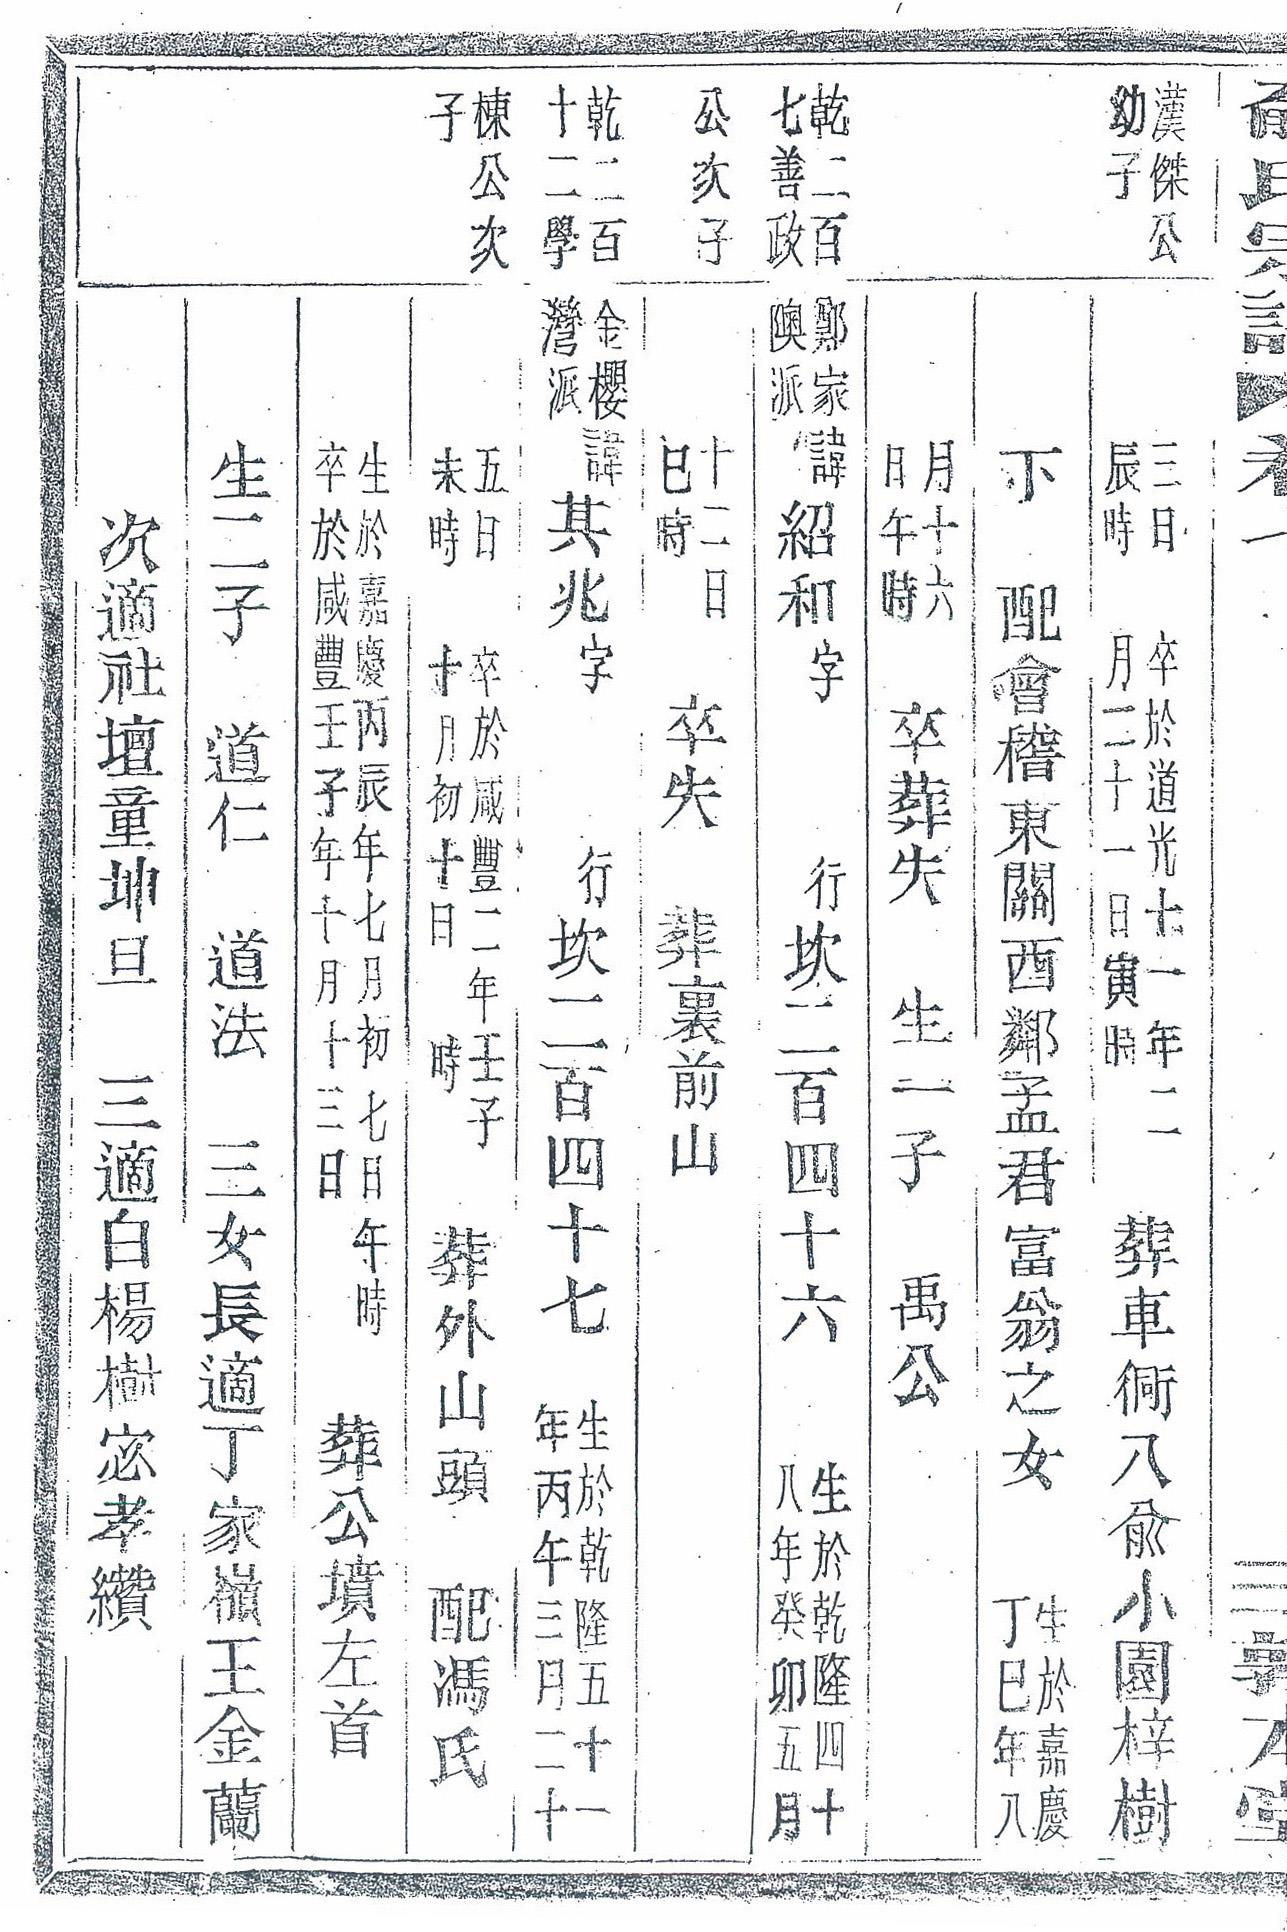 俞氏宗譜 卷一 敦本堂
漢傑公
幼子
三日
辰時
卒於道光十一年二
月二十一日寅時
葬車衕八俞小園梓樹
下 配會稽東關酉鄰孟君富翁之女
生於嘉慶
丁巳年八
月十六
日午時
卒葬失 生一子 禹公
乾二百
七善政
公次子
鄭家
隩派
諱紹和字 行坎二百四十六
生於乾隆四十
八年癸卯五月
十二日
巳時
卒失 葬裏前山
乾二百
十二學
棟公次
子
金櫻
灣派
諱其兆字 行坎二百四十七
生於乾隆五十一
年丙午三月二十
五日
未時
卒於咸豐二年壬子
十月初十日 時
葬外山頭 配馮氏
生於嘉慶丙辰年七月初七日午時
卒於咸豐壬子年十月十三日
葬公墳左首
生二子 道仁 道法 三女長適丁家嶺王金蘭
次適社壇童坤旦 三適白楊樹宓孝纘